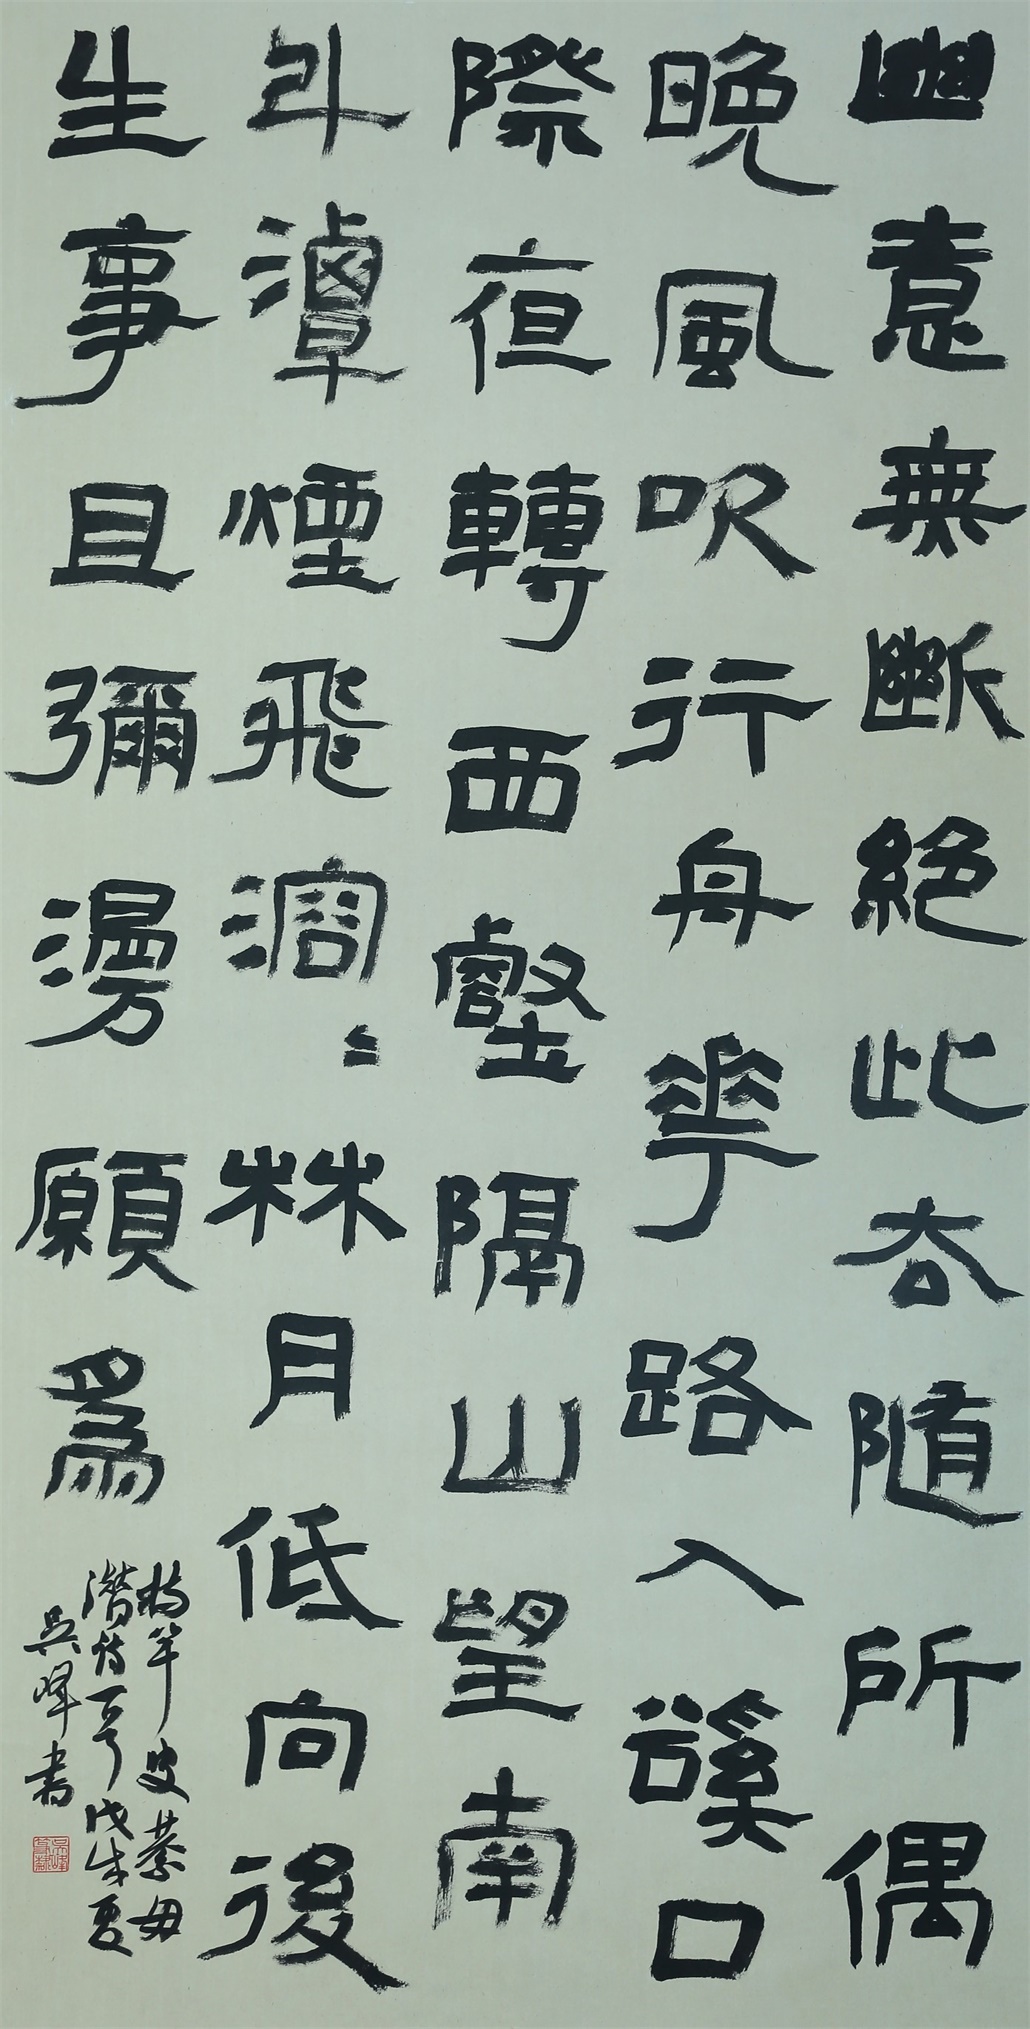 幽意無斷絕此去隨所偶
晚風吹行舟花路入谿口
際夜轉西壑隔山望南
斗潭煙飛溶〻林月低向後
生事且彌漫願爲
持竿叟綦毋
潛詩一首戊戌夏
吳峰書